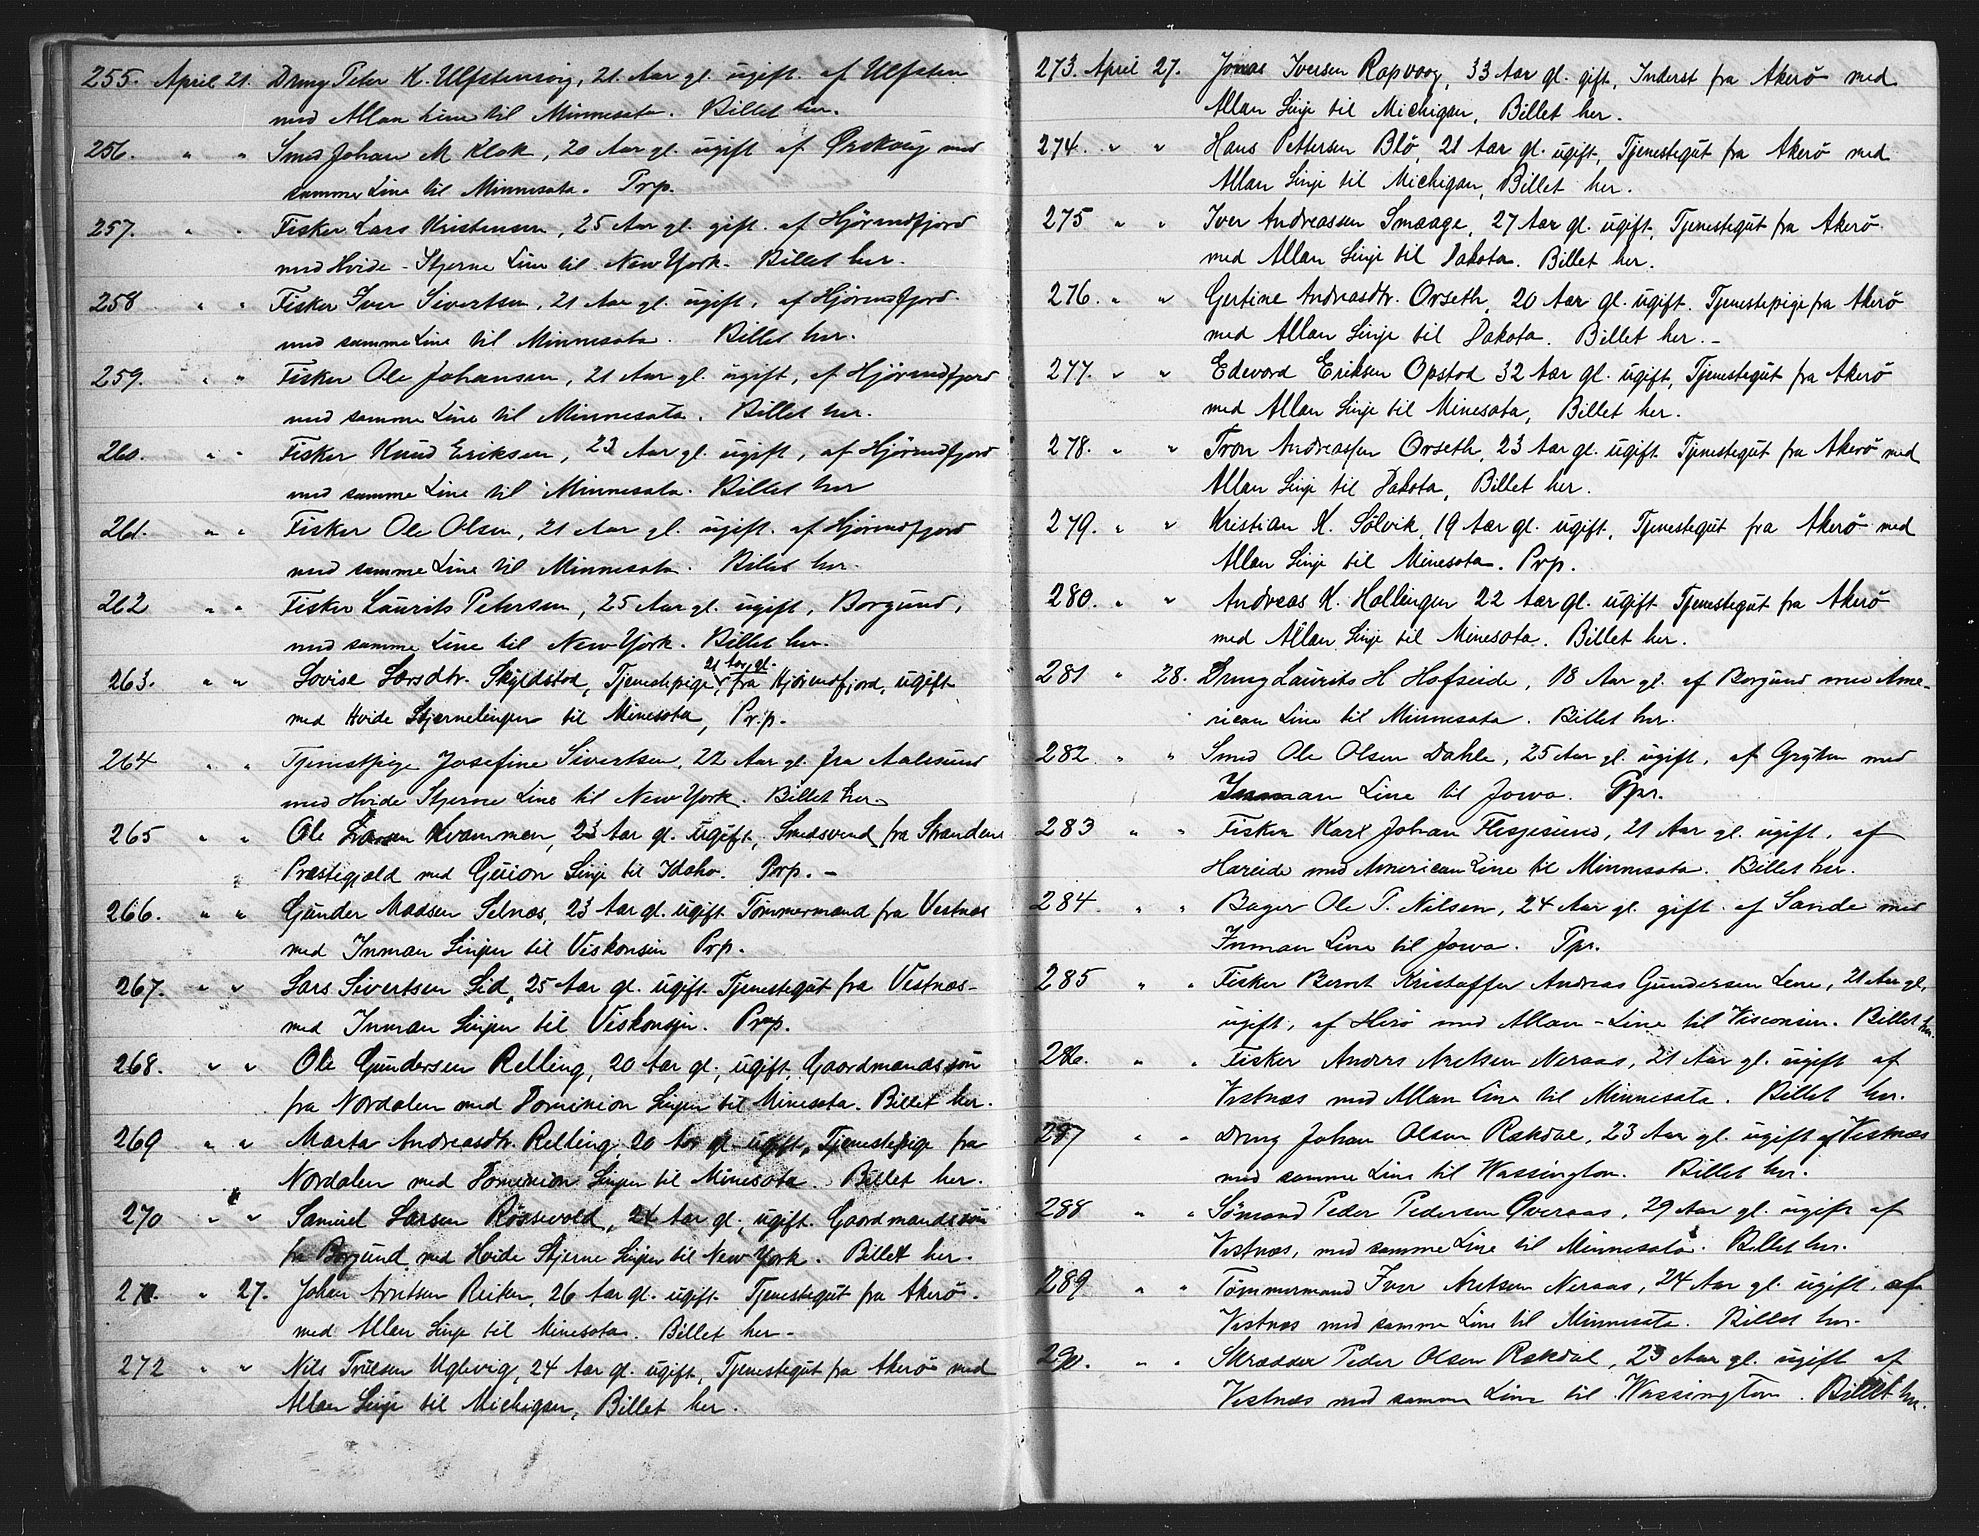 255. April 21. Dreng Peter K. Ulfstensvig, 21. Aar gl. ugift. af Ulfsten
med Allan Line til Minnesota. Billet her.
256. " " Smed Johan M Klok, 20 Aar gl. ugift af Ørskoug med
samme Line til Minnesota. Prp.
257. " " Fisker Lars Kristensen, 25 Aar gl. gift. af Hjörundfjord
med Hvide-Stjerne Line til New York. Billet her.
258 " " Fisker Iver Sivertsen, 21 Aar gl. ugift, af Hjörundfjord.
med samme Line til Minnesota. Billet her.
259. " " Fisker Ole Johansen, 21 Aar gl. ugift, af Hjörundfjord
med samme Line til Minnesota. Billet her.
260. " " Fisker Knud Eriksen, 23 Aar gl. ugift, af Hjörundfjord
med samme Line til Minnesota. Billet her
261. " " Fisker Ole Olsen, 21 Aar gl. ugift. af Hjörundfjord
med samme Line til Minnesota. Billet her.
262 " " Fisker Laurits Petersen, 25 Aar gl. ugift, Borgund,
med samme Line til New York. Billet her.
263. " " Lovise Larsdtr. Skylstad, Tjenestepige, 21 Aar gl. fra Hjörundfjord, ugift
med Hvide Stjernelinjen til Minesota, Prp.
264 " " Tjenestpige Josefine Sivertsen, 22 Aar gl. fra Aalesund
med Hvide Stjerne Line til New York. Billet her.
265 " " Ole Larsen Kvammen, 23 Aar gl. ugift, Smedsvend fra Strandens
Præstegjæld med Guion Linje til Idaho. Prp. -
266. " " Gunder Madsen Selnæs, 23 Aar gl. ugift. Tömmermand fra Vestnæs
med Inman Linjen til Viskonsin Prp.
267. " " Lars Sivertsen Lid, 25 Aar gl. ugift. Tjenestegut fra Vestnæs-
med Inman Linjen til Viskonsjn. Prp.
268. " " Ole Gundersen Relling, 20 Aar gl., ugift, Gaardmandssön
fra Nordalen med Dominion Linjen til Minesota. Billet her.
269 " " Marta Andreasdtr. Relling, 20 Aar gl. ugift, Tjenestepige fra
Nordalen med Dominion Linjen til Minesota. Billet her.
270 " " Samuel Larsen Rössevold, 24 Aar gl., ugift. Gaardmandssön
fra Borgund med Hvide Stjerne Linjen til New York. Billet her.
271. " 27. Johan Arntsen Reiten, 26 Aar gl. ugift. Tjenestegut fra Akerö.
med Allan Linje til Minesota. Billet her-
272 " " Nils Trulsen Uglvig, 24 Aar gl. ugift, Tjenestegut fra Akerö med
Allan Linje til Michigan, Billet her.
273. April 27. Jonas Iversen Rapvaag, 33 Aar gl. gift, Inderst fra Akerö med
Allan Linje til Michigan, Billet her.
274. " " Hans Pettersen Blö, 21 Aar gl. ugift, Tjenestegut fra Akerö med
Allan Linje til Michigan, Billet her.
275 " " Iver Andreassen Smaage, 27 Aar gl. ugift, Tjenestegut fra Akerö.
med Allan Linje til Dakota. Billet her.
276. " " Gertine Andreasdtr. Orseth, 20 Aar gl. ugift. Tjenestepige fra Akerö
med Allan Linje til Dakota. Billet her. -
277. " " Edevard Eriksen Opstad 32 Aar gl. ugift, Tjenestegut fra Akerö
med Allan Linje til Minesota, Billet her.
278. " " Tron Andreassen Orseth, 23 Aar gl. ugift Tjenestegut fra Akerö med
Allan Linje til Dakota, Billet her.
279. " " Kristian K. Solvik, 19 Aar gl. ugift, Tjenestegut fra Akerö med
Allan Linje til Minesota. Prp.
280. " " Andreas K. Hollingen 22 Aar gl. ugift Tjenestegut fra Akerö
med Allan Linje til Minesota. Billet her.
281 " 28. Dreng Laurits H Hofseide, 18 Aar gl. af Borgund med Ame-
rican Line til Minnesota. Billet her.
282. " " Smed Ole Olsen Dahle, 25 Aar gl. ugift, af Grytten med
Inman Line til Jowa. Ppr.
283 " " Fisker Karl Johan Flesjesund, 21 Aar gl. ugift, af
Hareide med American Line til Minnesota. Billet her.
284 " " Bager Ole T. Nilsen, 24 Aar gl. gift af Sande med
Inman Line til Jowa. Tpr.
285 " " Fisker Bernt Kristoffer Andreas Gundersen Lene, 21 Aar gl.
ugift, af Herö med Allan-Line til Wisconsin. Billet her.
286. " " Fisker Anders Aretsen Neraas, 21 Aar gl. ugift af
Vestnæs med Allan Line til Minnesota. Billet her.
287 " " Dreng Johan Olsen Rækdal, 23 Aar gl. ugift af Vestnæs
med samme Line til Wassington. Billet her.
288 " " Sömand Peder Pedersen Øveraas, 29 Aar gl. ugift af
Vestnæs, med samme Line til Minnesota. Billet her.
289 " " Tömmermand Iver Aretsen Neraas, 24 Aar gl. ugift, af
Vestnæs med samme Line til Minnesota. Billet her.
290. " " Skrædder Peder Olsen Rækdal, 29 Aar gl. ugift af
Vestnæs med samme Line til Wassington. Billet her.